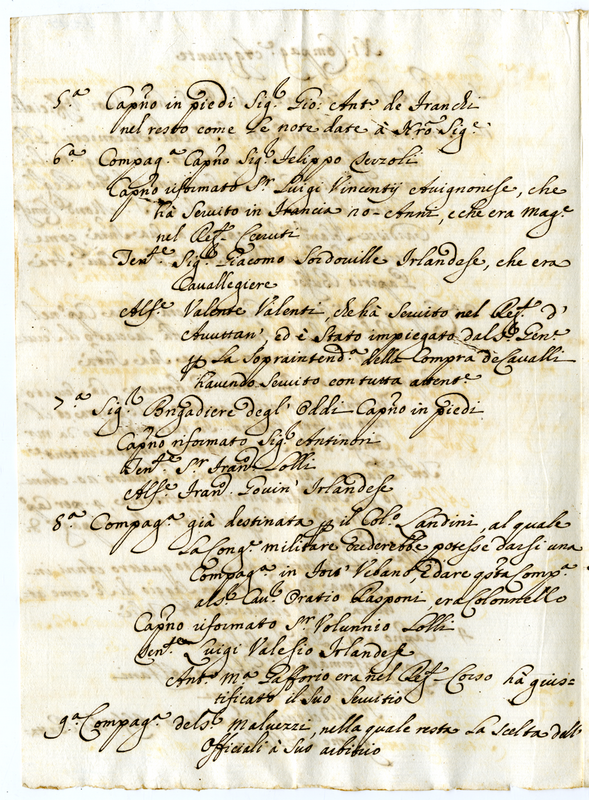 5.ª Capno in piedi Sig.r Gio: Ant.o de Franchi
nel resto come le note date à Nrō Sig.e
6.ª Compag.a Capno Sig.r Felippo Serzoli
Capno riformato S.r Luigi Vincentij Avignonese, che
ha Servito in Francia 20 Anni, e che era Mag.e
nel Reg.to Ceruti
Ten.te Sig.r Giacomo Sordoville Irlandese, che era
Cavallegiere
Alf.e Valente Valenti, che hà Servito nel Reg.to d'
ed è Stato impiegato dal S.r Gen.e
p La Sopraintend.a della Compra de Cavalli
havendo Servito con tutta attent.e
7.ª Sig.r Brigadiere degl' Oddi Capno in piedi
Capno riformato Sig.r Antinori
Ten.te S.r Fran.o Lolli
Alf.e Fran.o Govin' Irlandese
8.ª Compag.a già destinata p il Col.o Landini, al quale
La Cong.e militare crederebbe potesse darsi una
Compag.a in Urbano, e dare q.sta Comp.a
al S.r Cav.r Oratio Rasponi, era Colonnello
Capno riformato S.r Volunnio Lolli
Ten.te Luigi Valesio Irlandese
Ant.o M.a Gafforio era nel Reg.to Corso hà gius=
tificato il Suo Servitio
9.ª Compag.a del S.r Malvezzi, nella quale resta La Scelta dell'
Officiali à Suo arbitrio